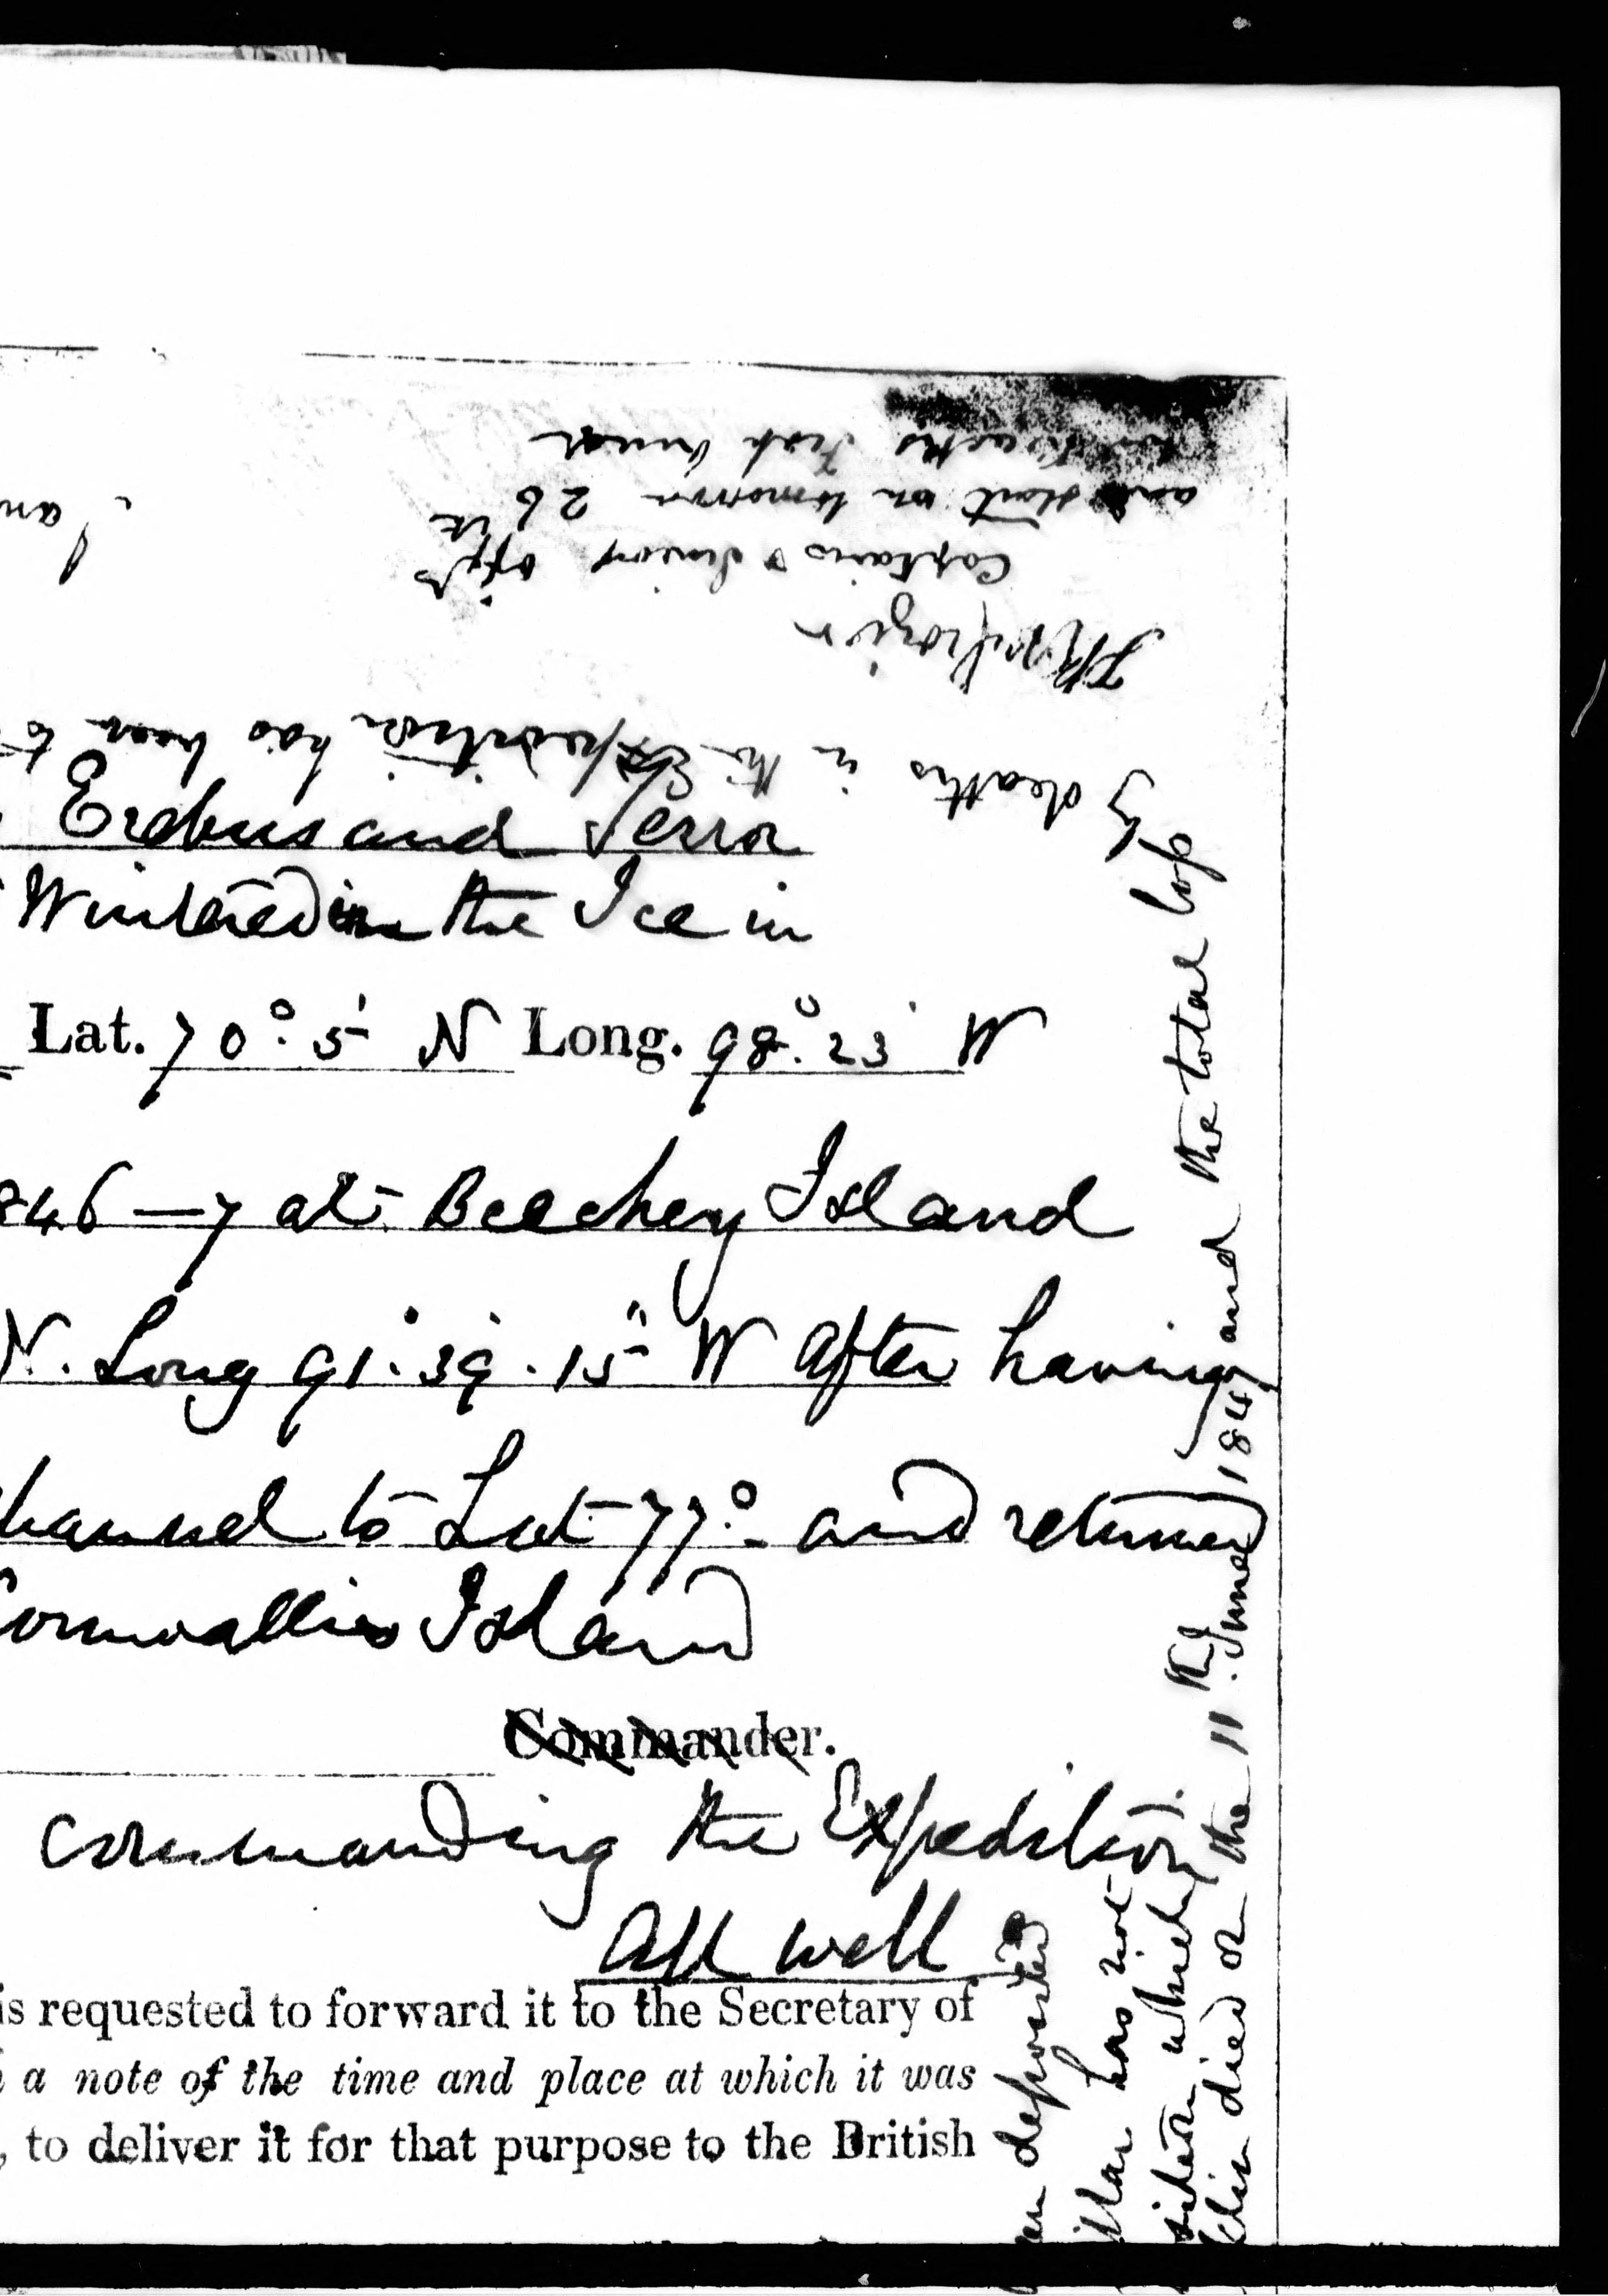 Erebus and Terror
Wintered in the Ice in
Lat. 70°. 5' N Long. 98°. 23' W
846—7 at Beechey Island
N. Long 91°. 39'. 15" W after having
hannel to Lat 77° and returned
Cornwallis Island
Commander.
commanding the Expedition
All well
is requested to forward it to the Secretary of
a note of the time and place at which it was
, to deliver it for that purpose to the British
en deposited
illar has not
sition which
klin died on the 11th June 1847 and the total loss
by deaths in the Expedition has been to
F R M Crozier
Captain & Senior Offr
and start on tomorrow 26th
for Backs Fish River